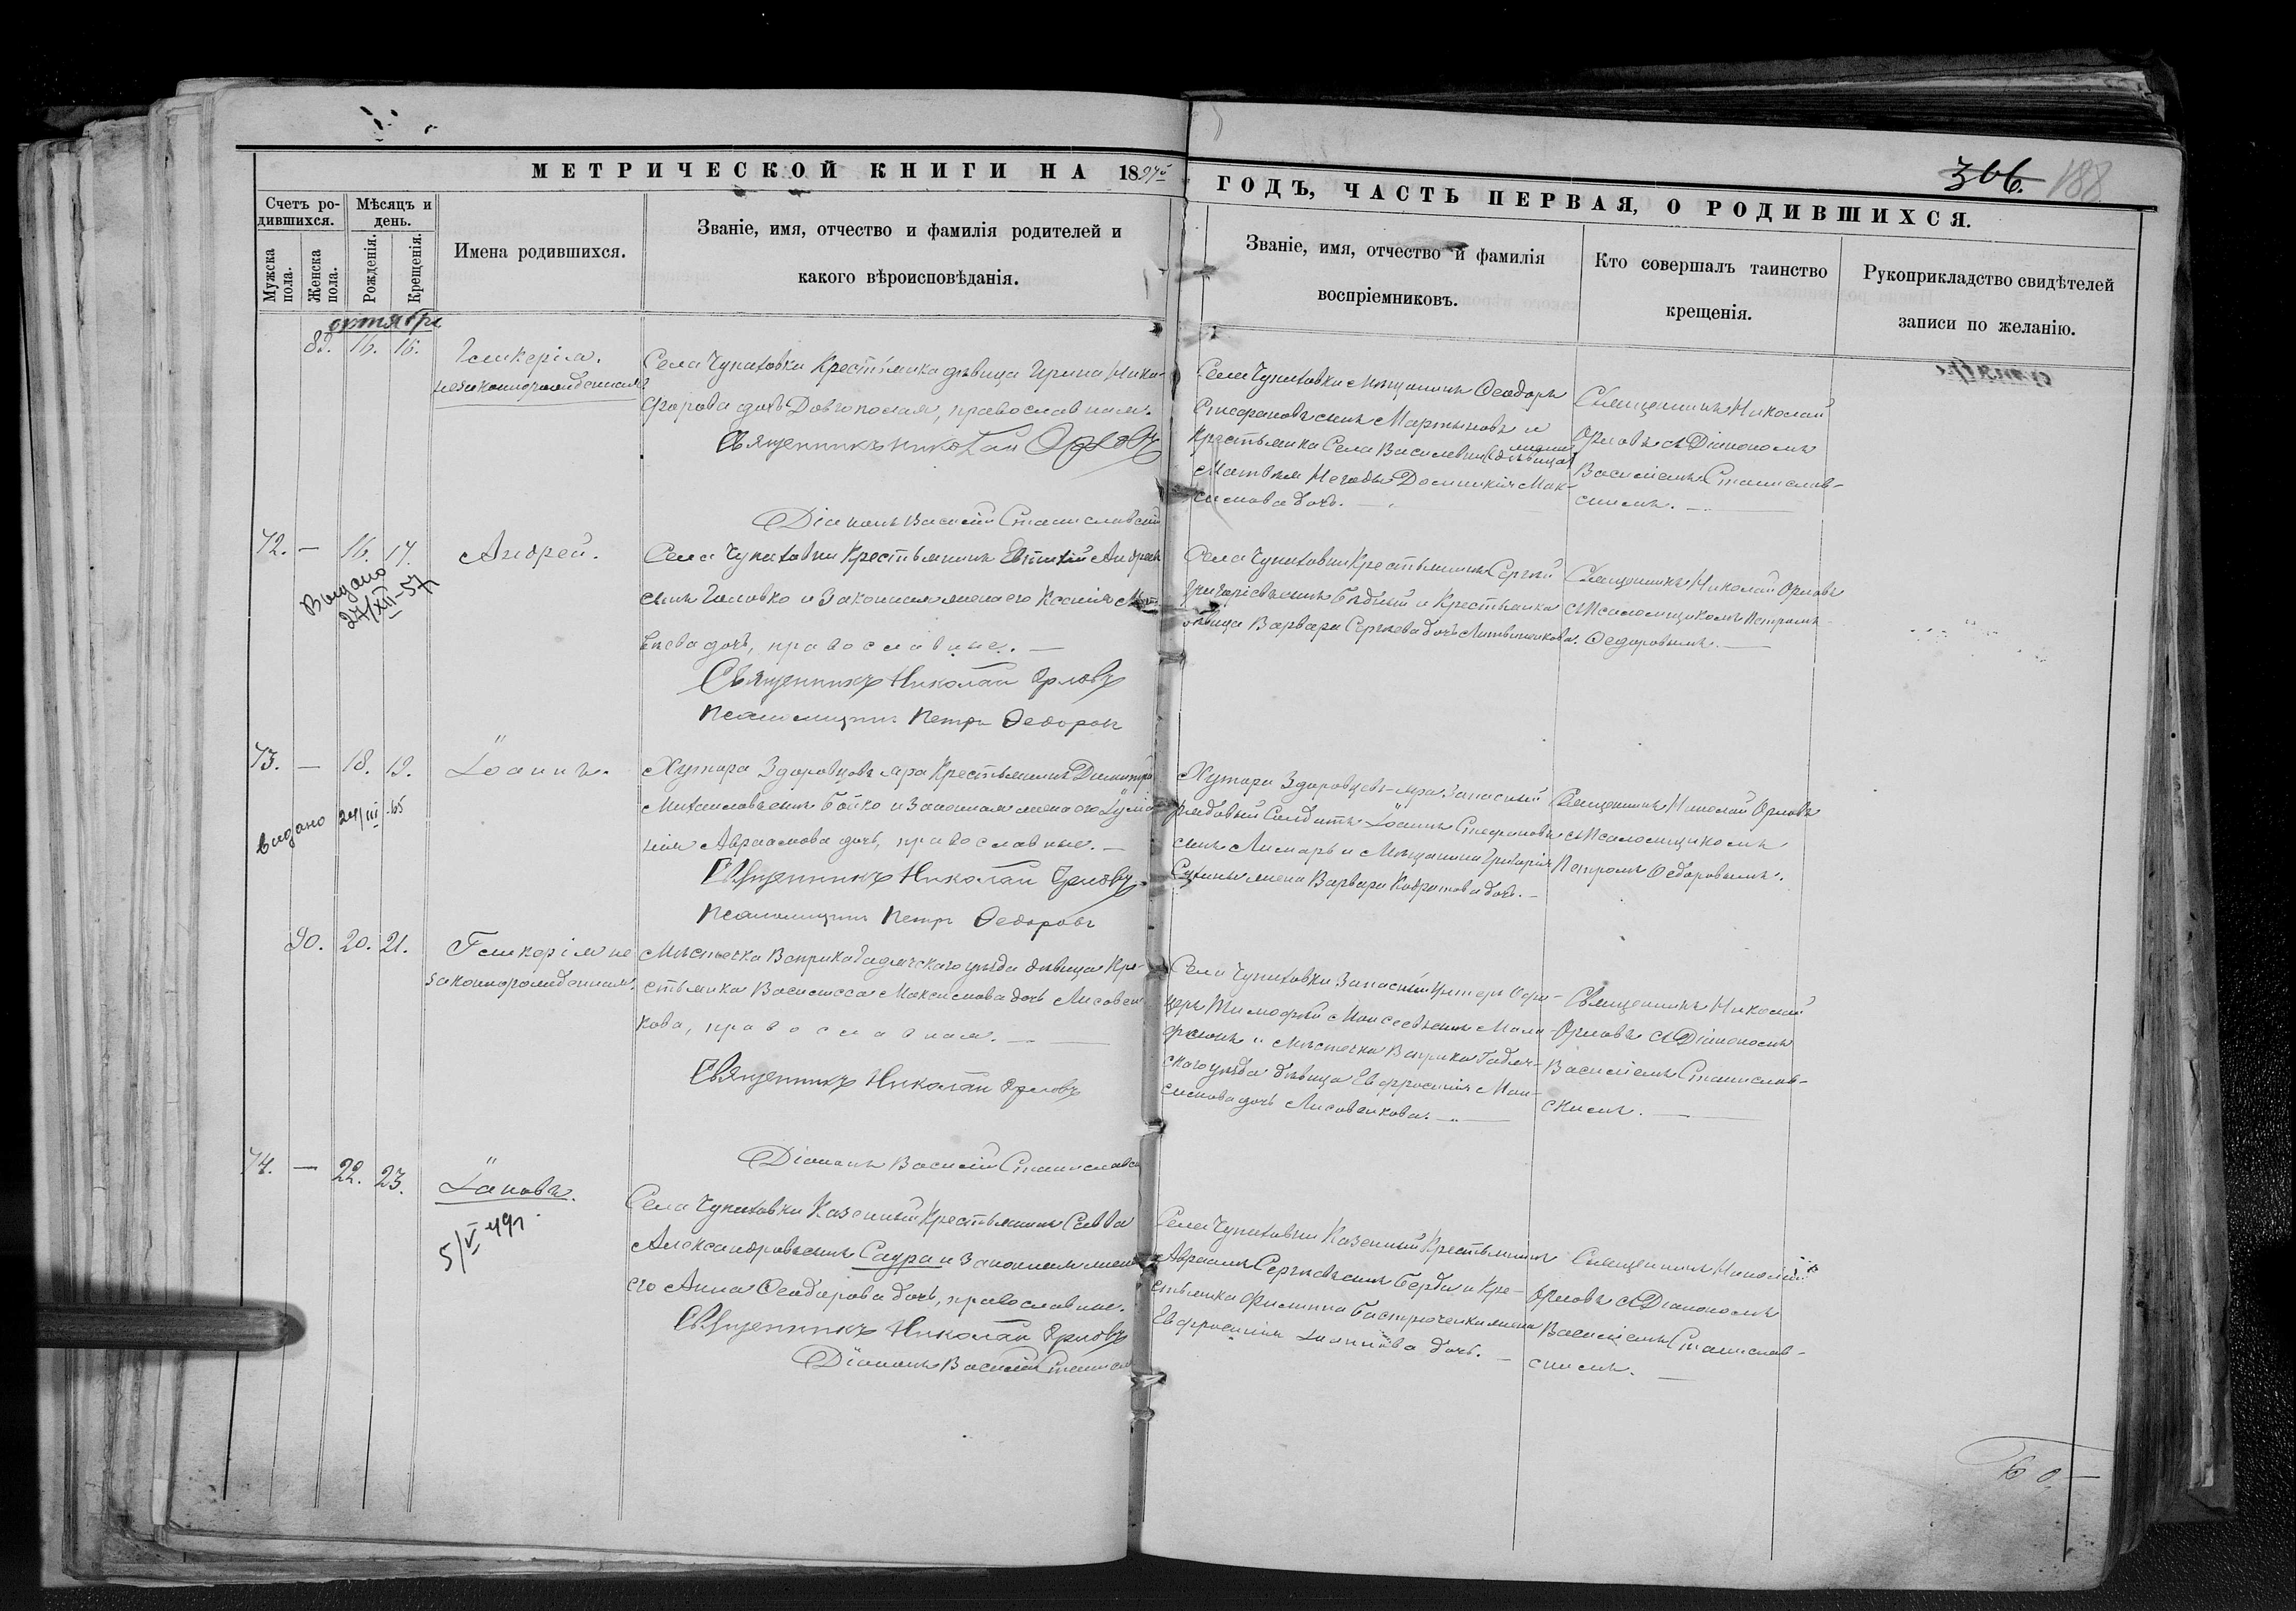 МЕТРИЧЕСКОЙ КНИГИ НА 1894й
ГОДЪ, ЧАСТЬ ПЕРВАЯ, О РОДИВШИХСЯ.
366. 188
Счетъ ро-
дившихся.
Мужска
пола.
Женска
пола.
Мѣсяцъ и
день.
Рожденія.
Крещенія.
Имена родившихся.
Званіе, имя, отчество и фамилія родителей и
какого вѣроисповѣданія.
Званіе, имя, отчество и фамилія
воспріемниковъ.
Кто совершалъ таинство
крещенія.
Рукоприкладство свидѣтелей
записи по желанію.
октября
16. 16.
Гликерія.
незаконнорожденная
Села Чупаховки Крестьянка дѣвица Ирина Ники-
форова дочь Довгополая, православная.
Священникъ Николай Орловъ
Діаконъ Василій Станиславскій
Села Чупаховки Мѣщанинъ Ѳеодоръ
Стефановъ сынъ Мартыновъ и
Крестьянка Села Василевки дѣвица
Матвѣя Негоды Домникія Мак-
симова дочь.
Священникъ Николай
Орловъ съ Діакономъ
Василіемъ Станислав-
скимъ.
72. — 16. 17.
Андрей.
Выдано
27/XII-57г
Села Чупаховки Крестьянинъ Евтихій Андреевъ
сынъ Головко и Законная жена его Ксенія Мат-
ѣева дочь, православные.
Священникъ Николай Орловъ
Псаломщикъ Петръ Ѳедоровъ
Села Чупаховки Крестьянинъ Сергѣй
Григоріевъ сынъ Бѣдный и Крестьянка
дѣвица Варвара Сергѣева дочь Литвинникова.
Священникъ Николай Орловъ
съ Псаломщикомъ Петромъ
Ѳедоровымъ.
73. — 18. 19.
Іоаннъ.
выдано 24/III-65
Хутора Здоровцовъ-яра Крестьянинъ Димитрій
Михаиловъ сынъ Бойко и Законная жена его Іулiа-
нія Авраамова дочь, православные.
Священникъ Николай Орловъ
Псаломщикъ Петръ Ѳедоровъ
Хутора Здоровцевъ-яра Запасный
рядовый Солдатъ Іоаннъ Стефановъ
сынъ Лимарь и Мѣщанина Григорія
Сухины жена Варвара Кодратова дочь.
Священникъ Николай Орловъ
съ Псаломщикомъ
Петромъ Ѳедоровымъ.
90. 20. 21.
Гликерія не
законнорожденная.
Мѣстечка Веприка Гадячскаго уѣзда дѣвица Кре-
стьянка Василисса Максимова дочь Лисовен-
кова, православная.
Священникъ Николай Орловъ
Діаконъ Василій Станиславскій
Села Чупаховки Запасный Унтеръ Офи-
церъ Тимофей Моисеевъ сынъ
и Мѣстечка Веприка Гадяч-
скаго уѣзда дѣвица Евфросинія Мак-
симова дочь Лисовенкова.
Священникъ Николай
Орловъ съ Діакономъ
Василіемъ Станислав-
скимъ.
74. — 22. 23.
Іаковъ.
5/V 49г.
Села Чупаховки Казенный Крестьянинъ Савва
Александровъ сынъ Саура и Законная жена
его Анна Ѳеодорова дочь, православные.
Священникъ Николай Орловъ
Діаконъ Василій Станислав
Села Чупаховки Казенный Крестьянинъ
Авраамъ Сергѣевъ сынъ Берда и Кре-
стьянина Филиппа Бастрюченки жена
Евфросинія дочь.
Священникъ Николай
Орловъ съ Діакономъ
Василіемъ Станислав-
скимъ.